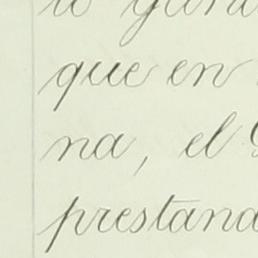 que en
na, el
prestand